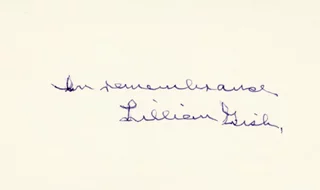 In remembrance
Lillian Gish,